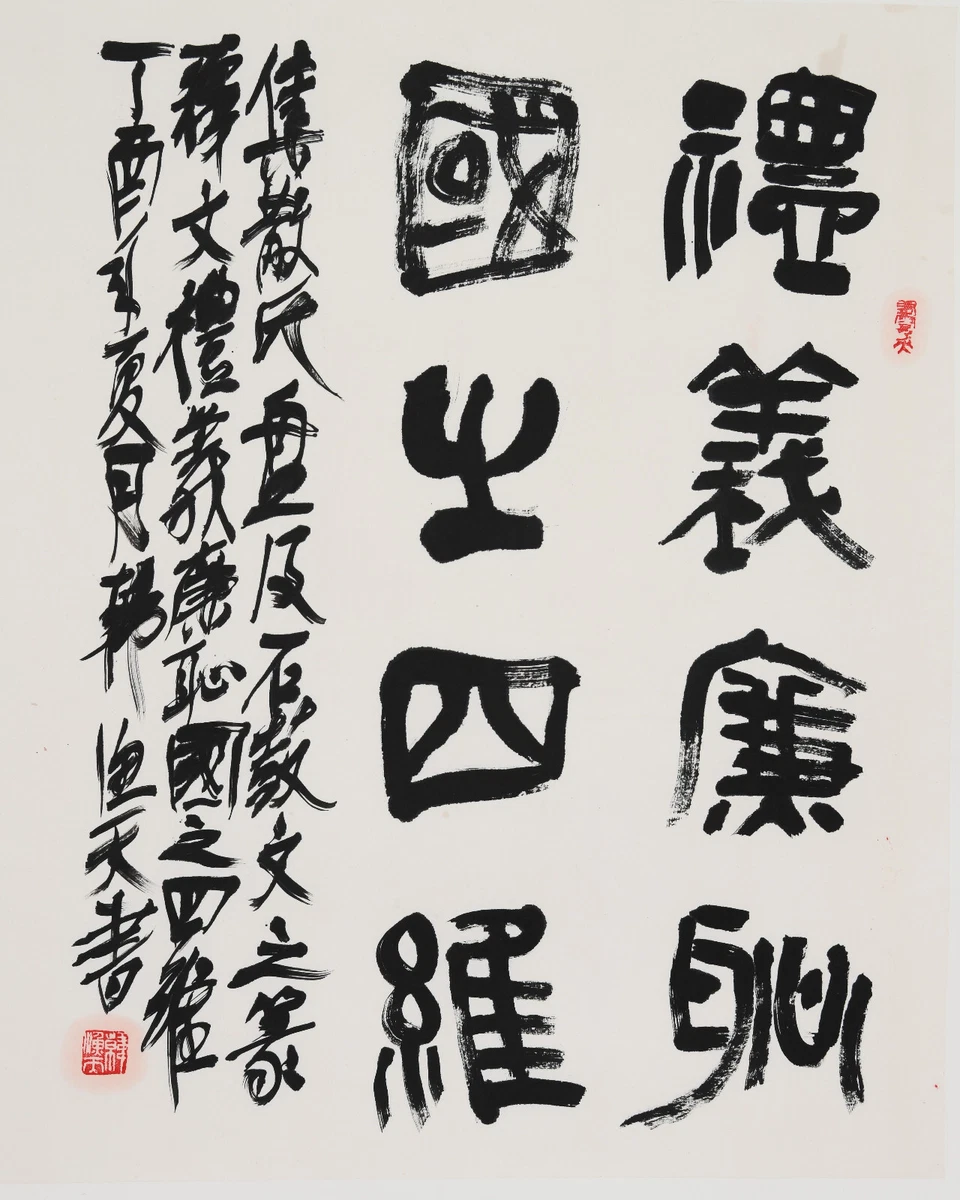 禮義廉恥
國之四維
集散氏盤及石鼓文之篆
釋文禮義廉恥國之四維
丁酉年夏月韓漁天書